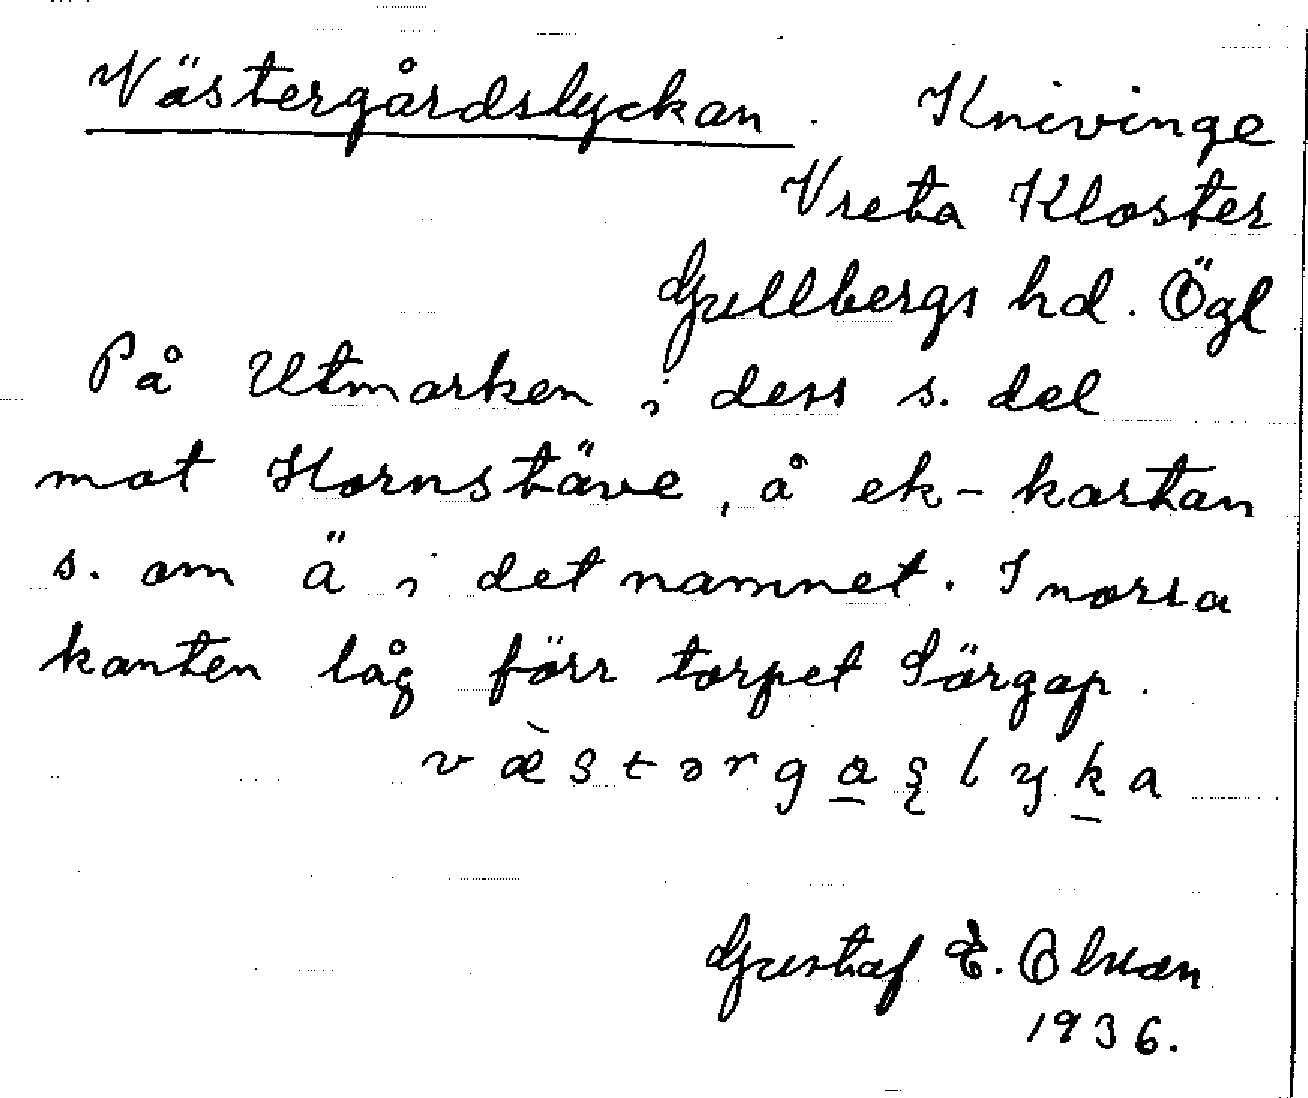 Västergårdslyckan. Knivinge
Vreta Kloster
Gullbergs hd. Ögl
På Utmarken i dess s. del
mot Hornstäve, å ek-kartan
s. om ä i det namnet. I norra
kanten låg förr torpet Sörgap.
væ̀stərgaslyka
Gustaf E. Olsson
1936.